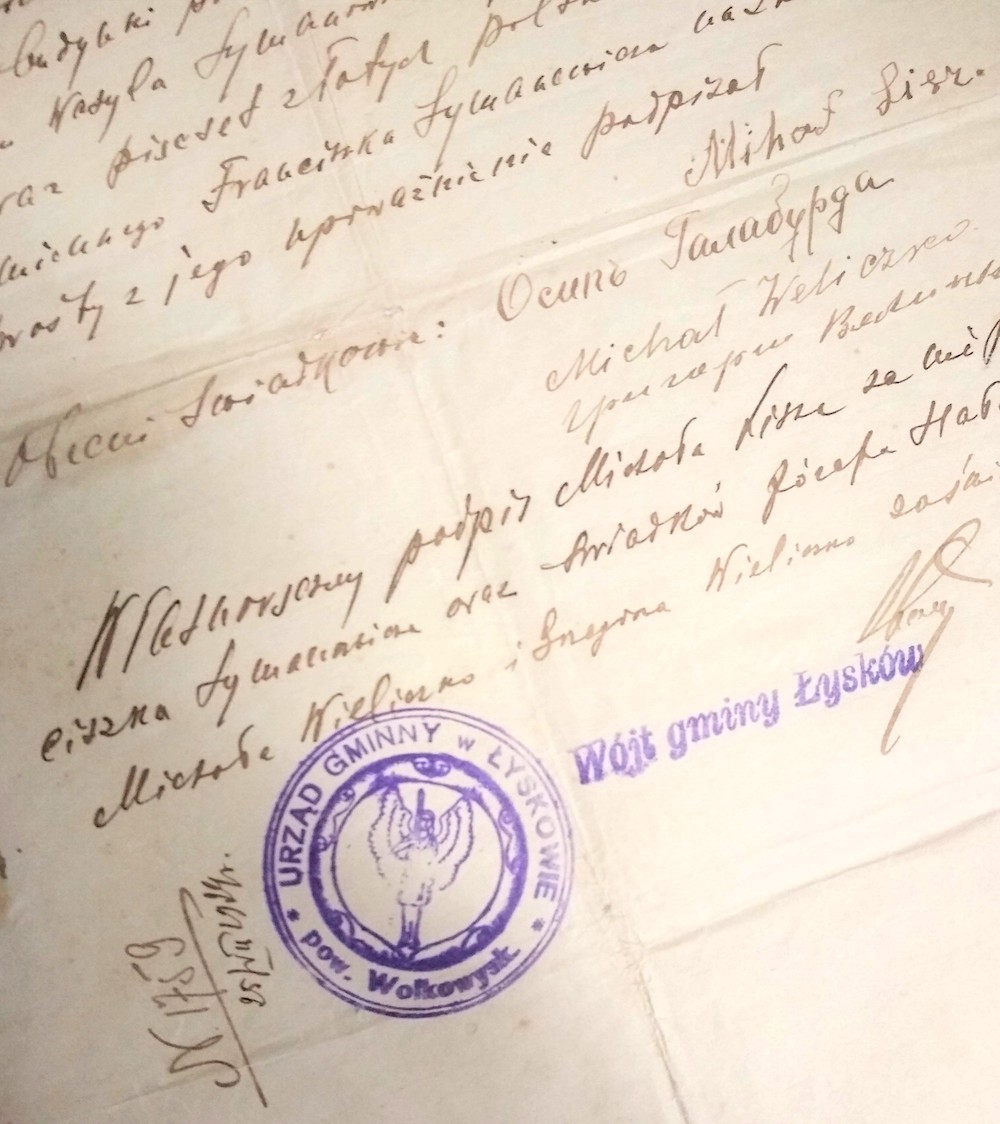 budynki
Wasyla Symanow
raz pięćset złotych polsk
Franciszka Symanowicza
prośby z jego upoważnienia podpisał
Mihaś Lisz.
Obecni Świadkowie: Осипъ Галабурда
Michał Weliczko
Własnoręczny podpis Michała Lisza za nie
ciszka Symanowicza oraz świadków Józefa Hał
Michała Wieliczko i Grzegorza Wieliczko zaświ
Wójt gminy Łysków
URZĄD GMINNY w ŁYSKOWIE
* pow. Wołkowysk *
N. 1759